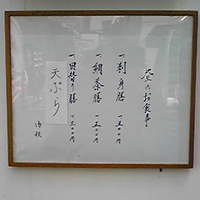 昼のお食事
一 刺身膳 一五〇〇円
一 鯛茶膳 一五〇〇円
一 日替り膳 一二〇〇円
天ぷら